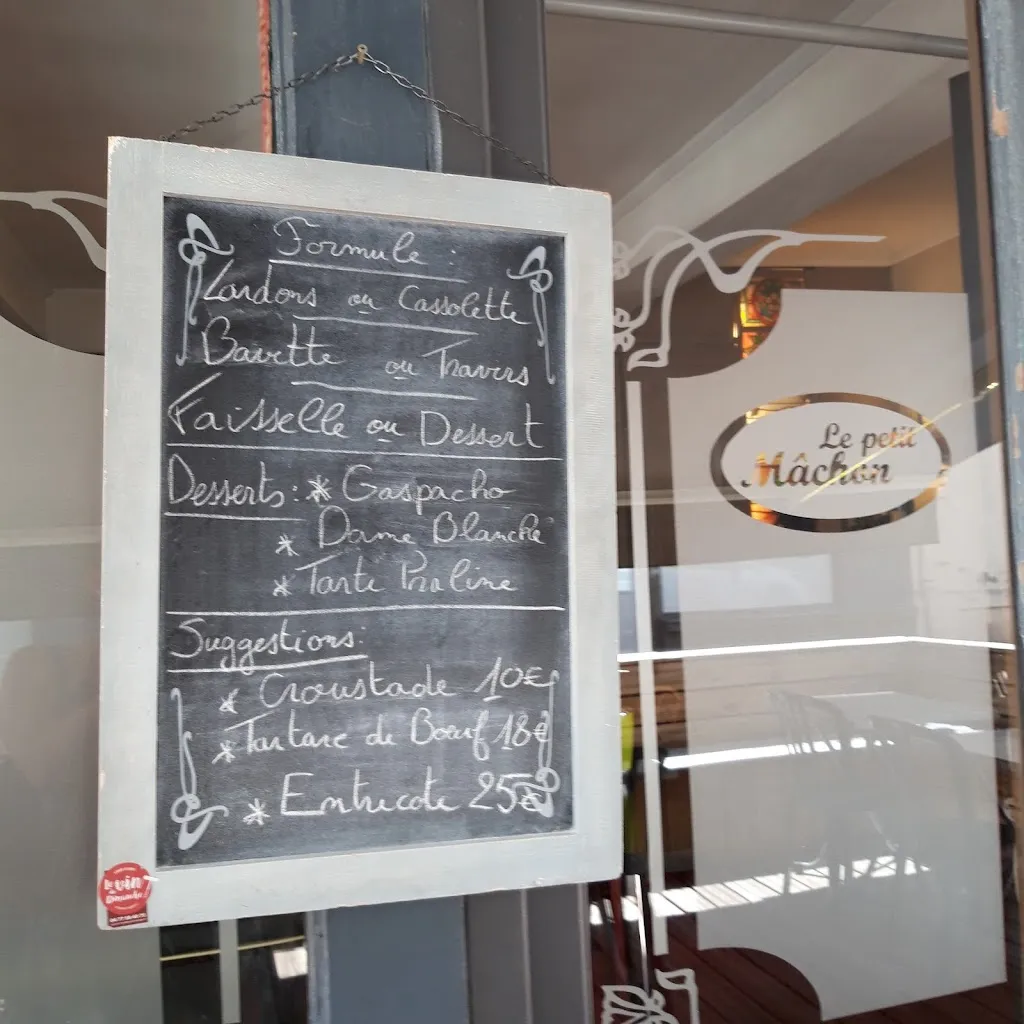 Formule :
Lardons ou Cassolette
Bavette ou Travers
Faisselle ou Dessert
Desserts : * Gaspacho
* Dame Blanche
* Tarte Praline
Suggestions:
* Croustade 10€
* Tartare de Bœuf 18€
* Entrecote 25€
Le petit
Mâchon
Le vin